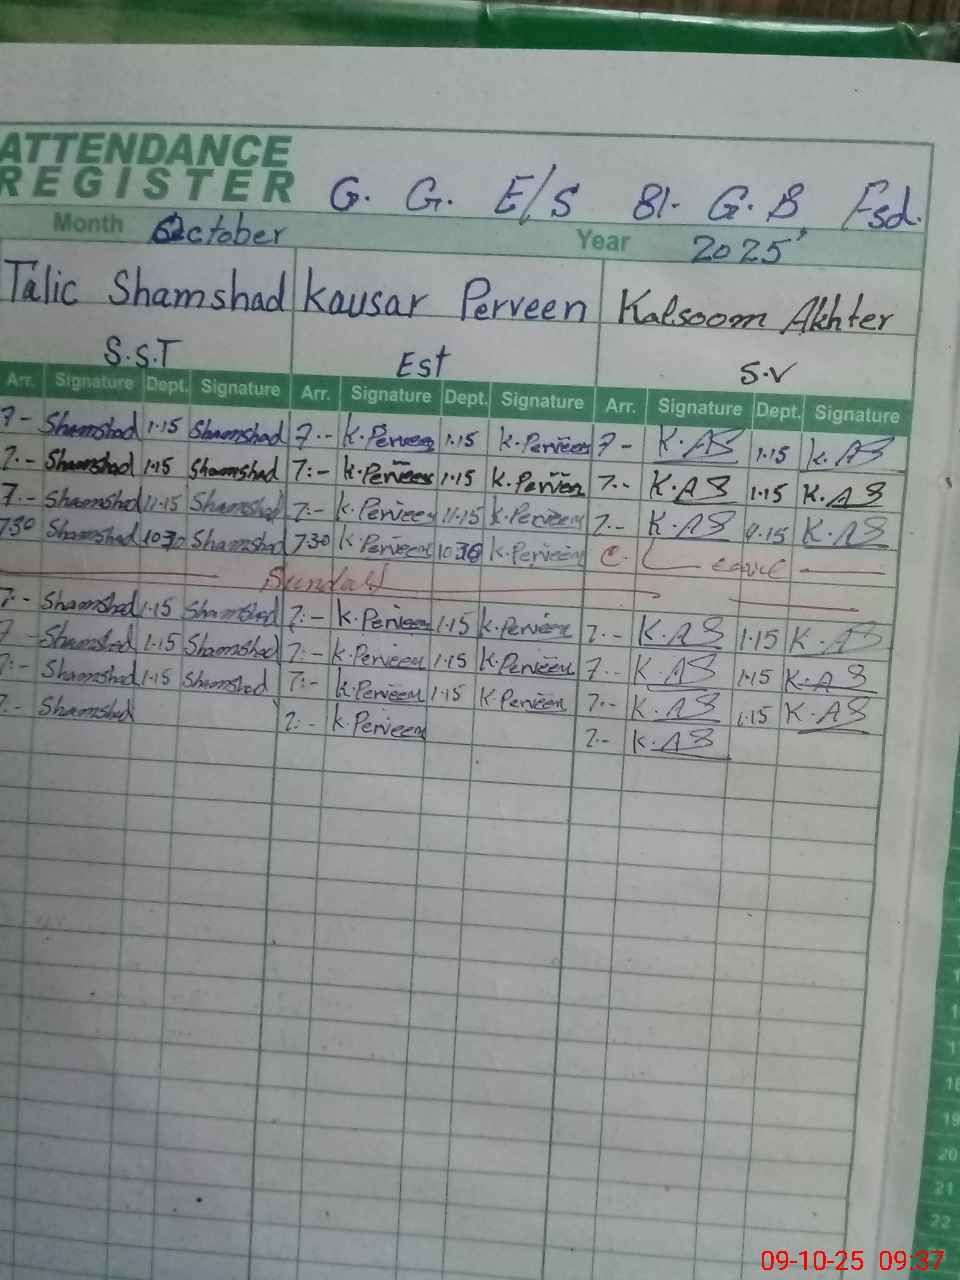 ATTENDANCE
REGISTER G. G. E/S 81. G.B Fsd.
Month October Year 2025
Talic Shamshad Kausar Perveen Kalsoom Akhter
S.S.T Est S.V
Arr. Signature Dept. Signature Arr. Signature Dept. Signature Arr. Signature Dept. Signature
7- Shamshad 1.15 Shamshad 7.- K.Perveen 1.15 K.Perveen 7- K.AS 1.15 K.AS
7.- Shamshad 1.15 Shamshad 7:- K.Perveen 1.15 K.Perveen 7.- K.AS 1.15 K.AS
7.- Shamshad 11.15 Shamshad 7:- K.Perveen 11.15 K.Perveen 7.- K.AS 11.15 K.AS
7.30 Shamshad 10.30 Shamshad 7.30 K.Perveen 10.30 K.Perveen C. Leave
Sunday
7:- Shamshad 1.15 Shamshad 7:- K.Perveen 1.15 K.Perveen 7.- K.AS 1.15 K.AS
7- Shamshad 1.15 Shamshad 7:- K.Perveen 1.15 K.Perveen 7.- K.AS 1.15 K.AS
7:- Shamshad 1.15 Shamshad 7:- K.Perveen 1.15 K.Perveen 7.- K.AS 1.15 K.AS
7.- Shamshad 7:- K.Perveen 7.- K.AS
18
19
20
21
22
09-10-25 09:37